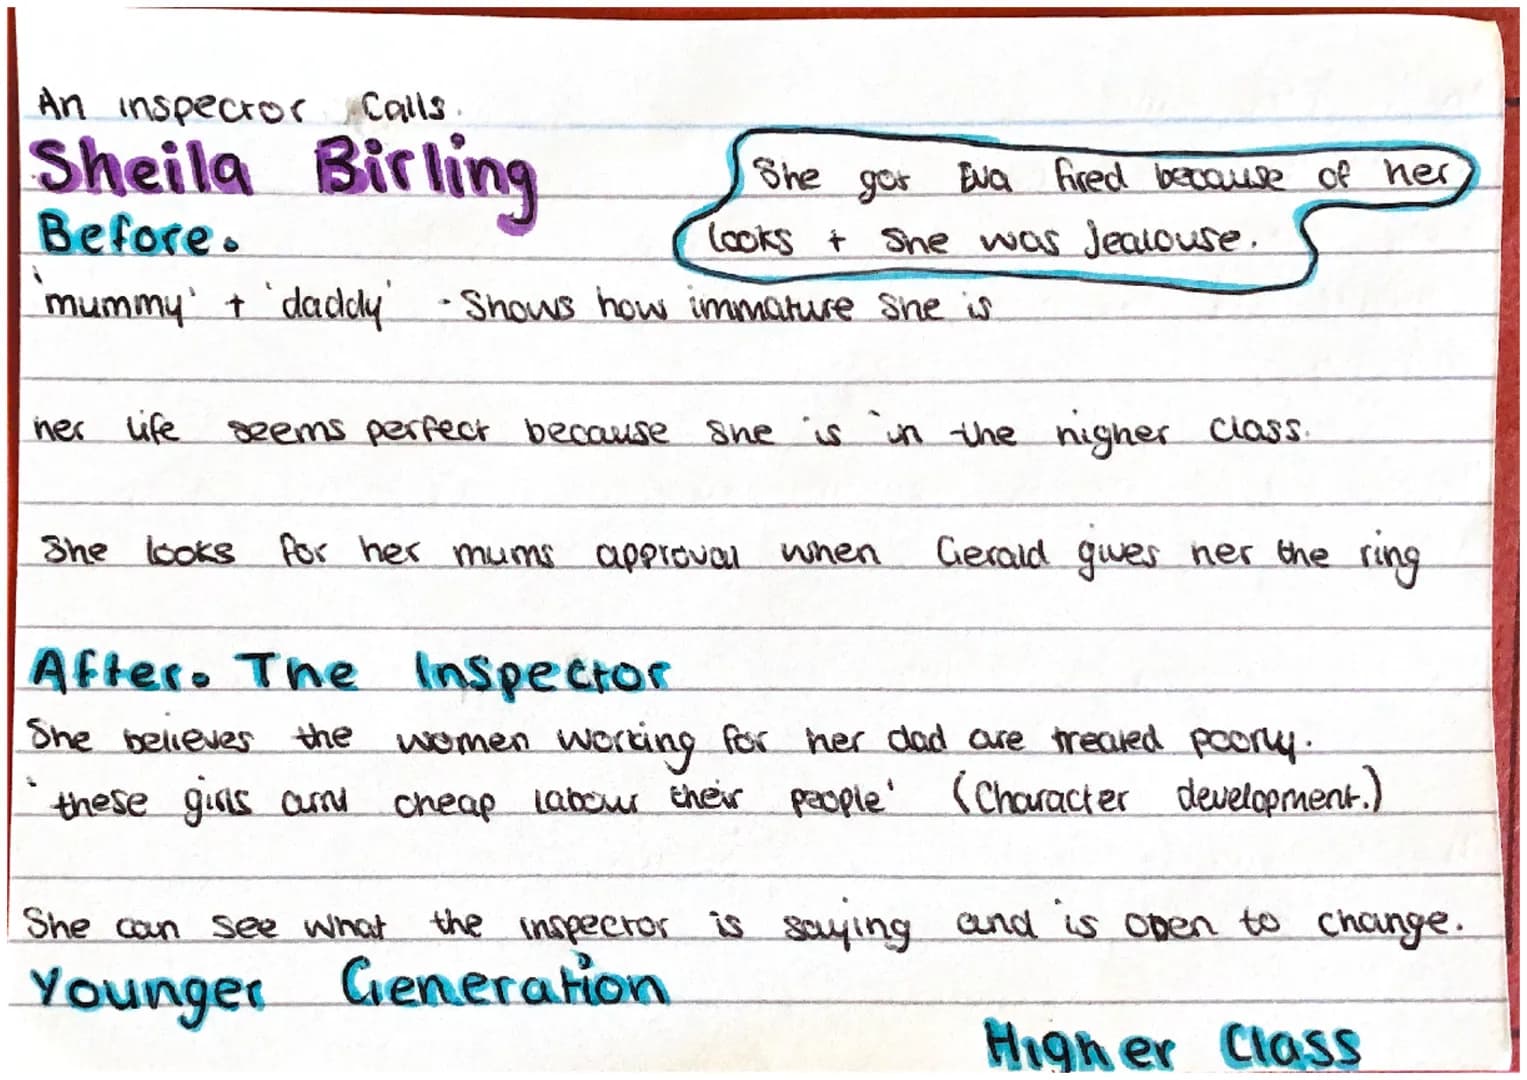 An inspector Calls.
Sheila Birling
She got Eva fired because of her
looks + She was Jealouse.
Before.
'mummy' + 'daddy' - Shows how immature She is
her life seems perfect because she is in the higher class.
She looks for her mums approval when Gerald gives her the ring
After. The Inspector
She believes the women working for her dad are treated poorly.
'these girls arnt cheap labour their people' (Character development.)
She can see what the inspector is saying and is open to change.
Younger Generation
Higher Class